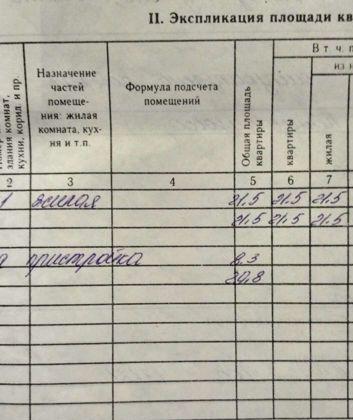 II. Экспликация площади кв
В т. ч. п
из н
здания комнат,
кухни, корид. и пр.
Назначение
частей
помеще-
ния: жилая
комната, кух-
ня и т.п.
Формула подсчета
помещений
Общая площадь
квартиры
квартиры
жилая
2 3 4 5 6 7
1 жилая 21,5 21.5 21.5
21,5 21.5 21.5
а пристройка 8.3
29,8